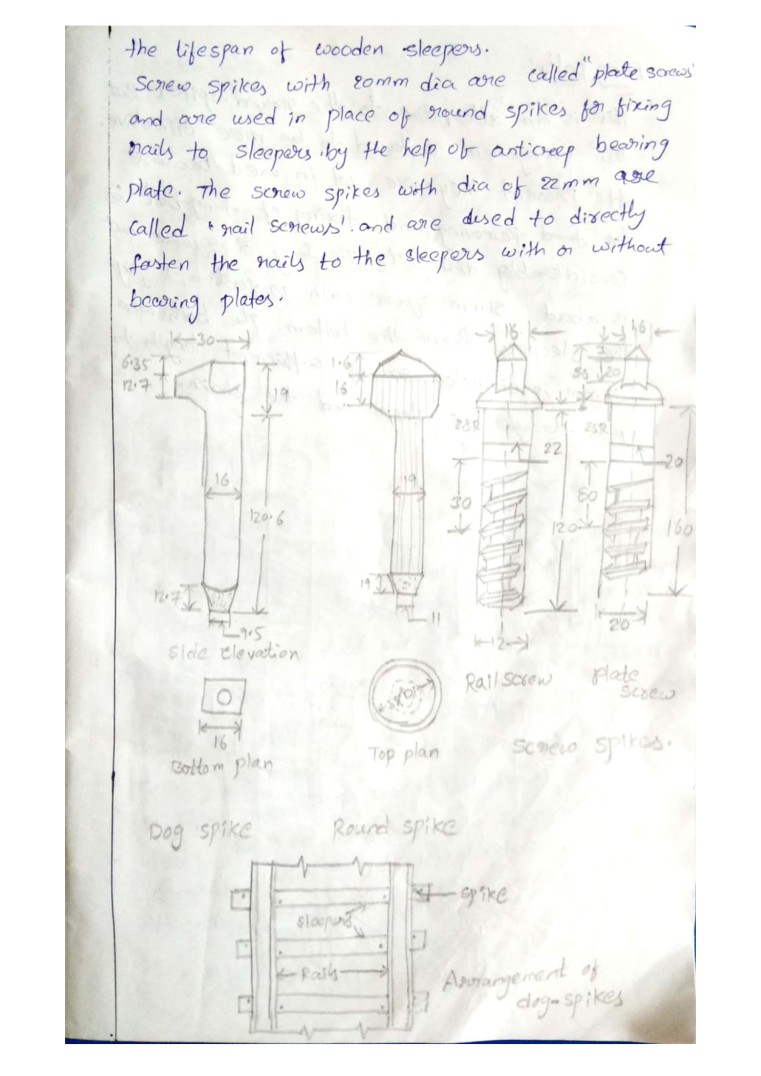 the lifespan of wooden sleepers.
Screw spikes with 20mm dia are called "plate screws'
and are used in place of round spikes for fixing
rails to sleepers by the help of anticreep bearing
plate. The screw spikes with dia of 22mm are
called 'rail screws'. and are used to directly
fasten the rails to the sleepers with or without
bearing plates.
30
6.35
12.7
19
16
120.6
12.7
9.5
Side Elevation
16
Bottom plan
Dog spike
1.6
16
19
19
11
Top plan
Round spike
18
22
30
120
12
Rail screw
16
20
20
80
160
20
plate
screw
Screw spikes.
spike
sleepers
Rails
Arrangement of
dog-spikes